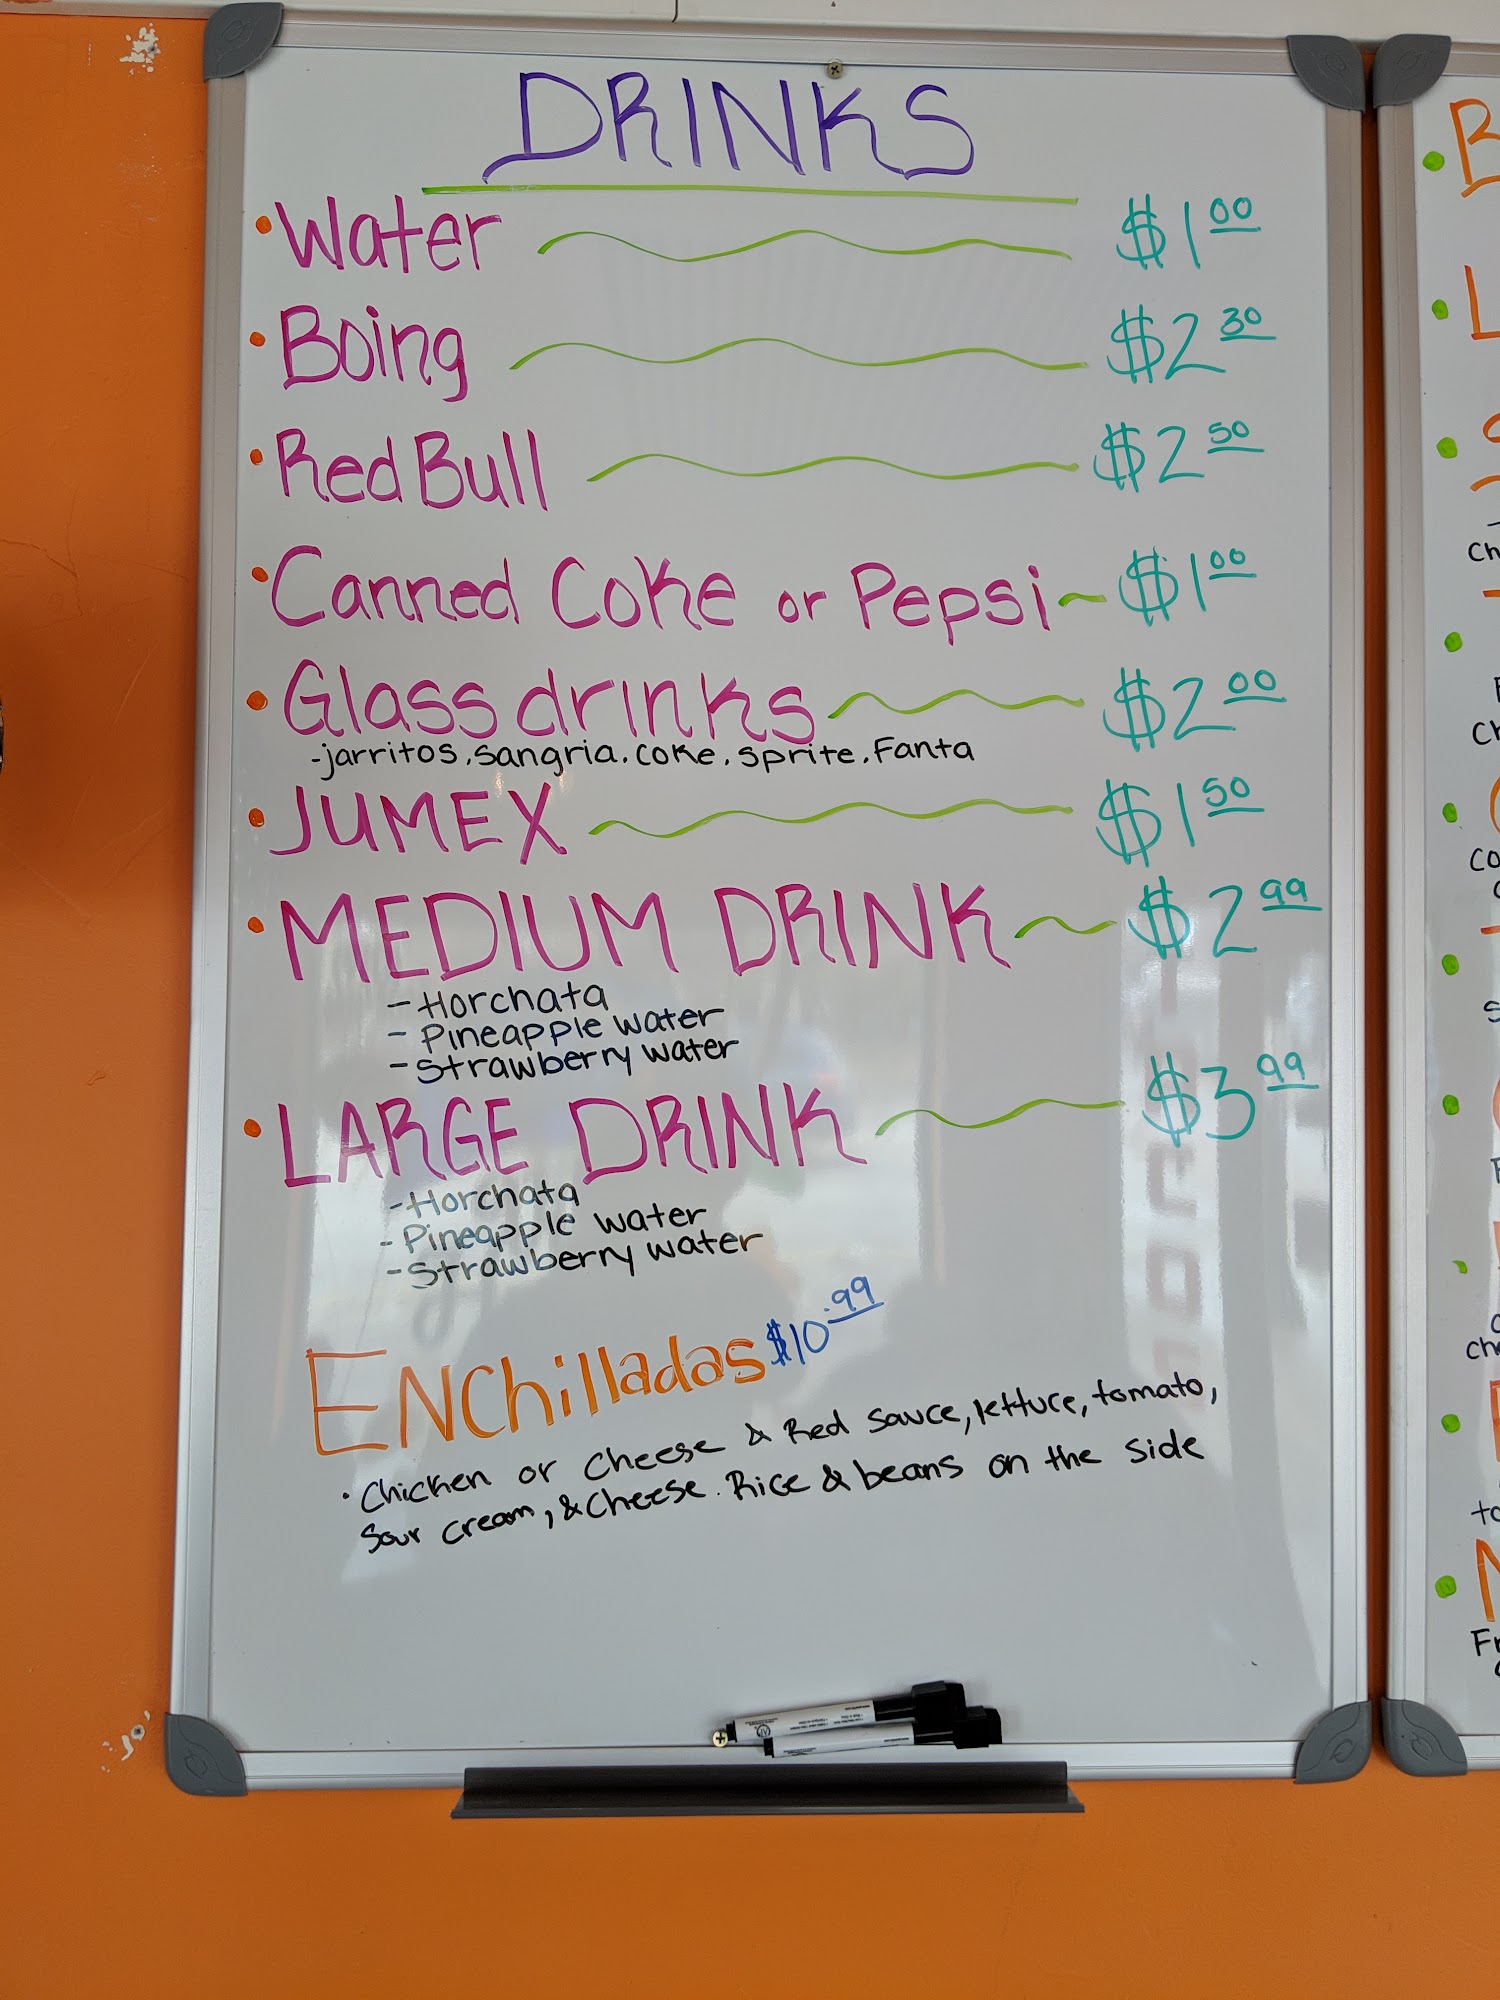 DRINKS
• Water $1 00
• Boing $2 30
• Red Bull $2 50
• Canned Coke or Pepsi ~ $1 00
• Glass drinks $2 00
-jarritos, sangria, coke, sprite, Fanta
• JUMEX $1 50
• MEDIUM DRINK ~ $2 99
- Horchata
- Pineapple water
- Strawberry water
• LARGE DRINK $3 99
- Horchata
- Pineapple water
- Strawberry water
ENChilladas $10.99
• Chicken or Cheese & Red Sauce, lettuce, tomato,
Sour cream, & Cheese. Rice & beans on the side